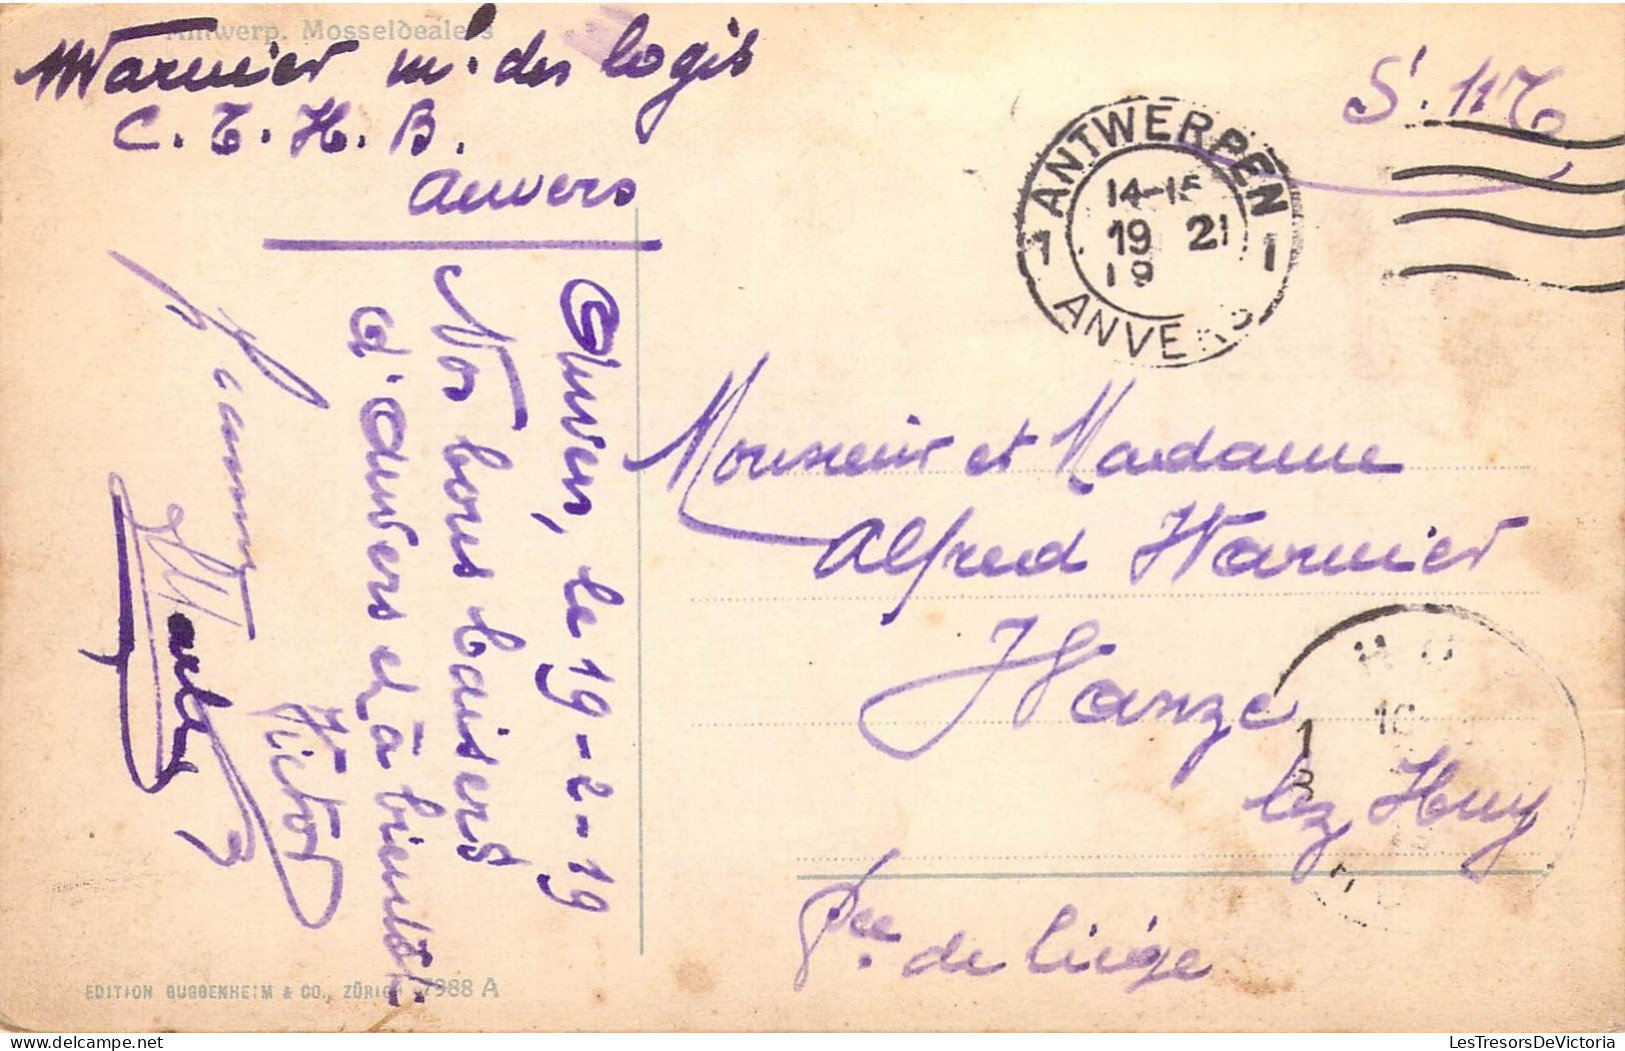 Antwerp. Mosseldealers
Warnier m. des logis
C. T. H. B.
Anvers
S. M
ANTWERPEN
14-15
19 21
19
1 1
ANVERS
Anvers, le 19-2-19
Nos bons baisers
d'Anvers et à bientôt.
Victor
Monsieur et Madame
Alfred Warnier
Wanze
lez Huy
Pce de Liége
EDITION GUGGENHEIM & CO., ZÜRICH 7988 A
LesTresorsDeVictoria